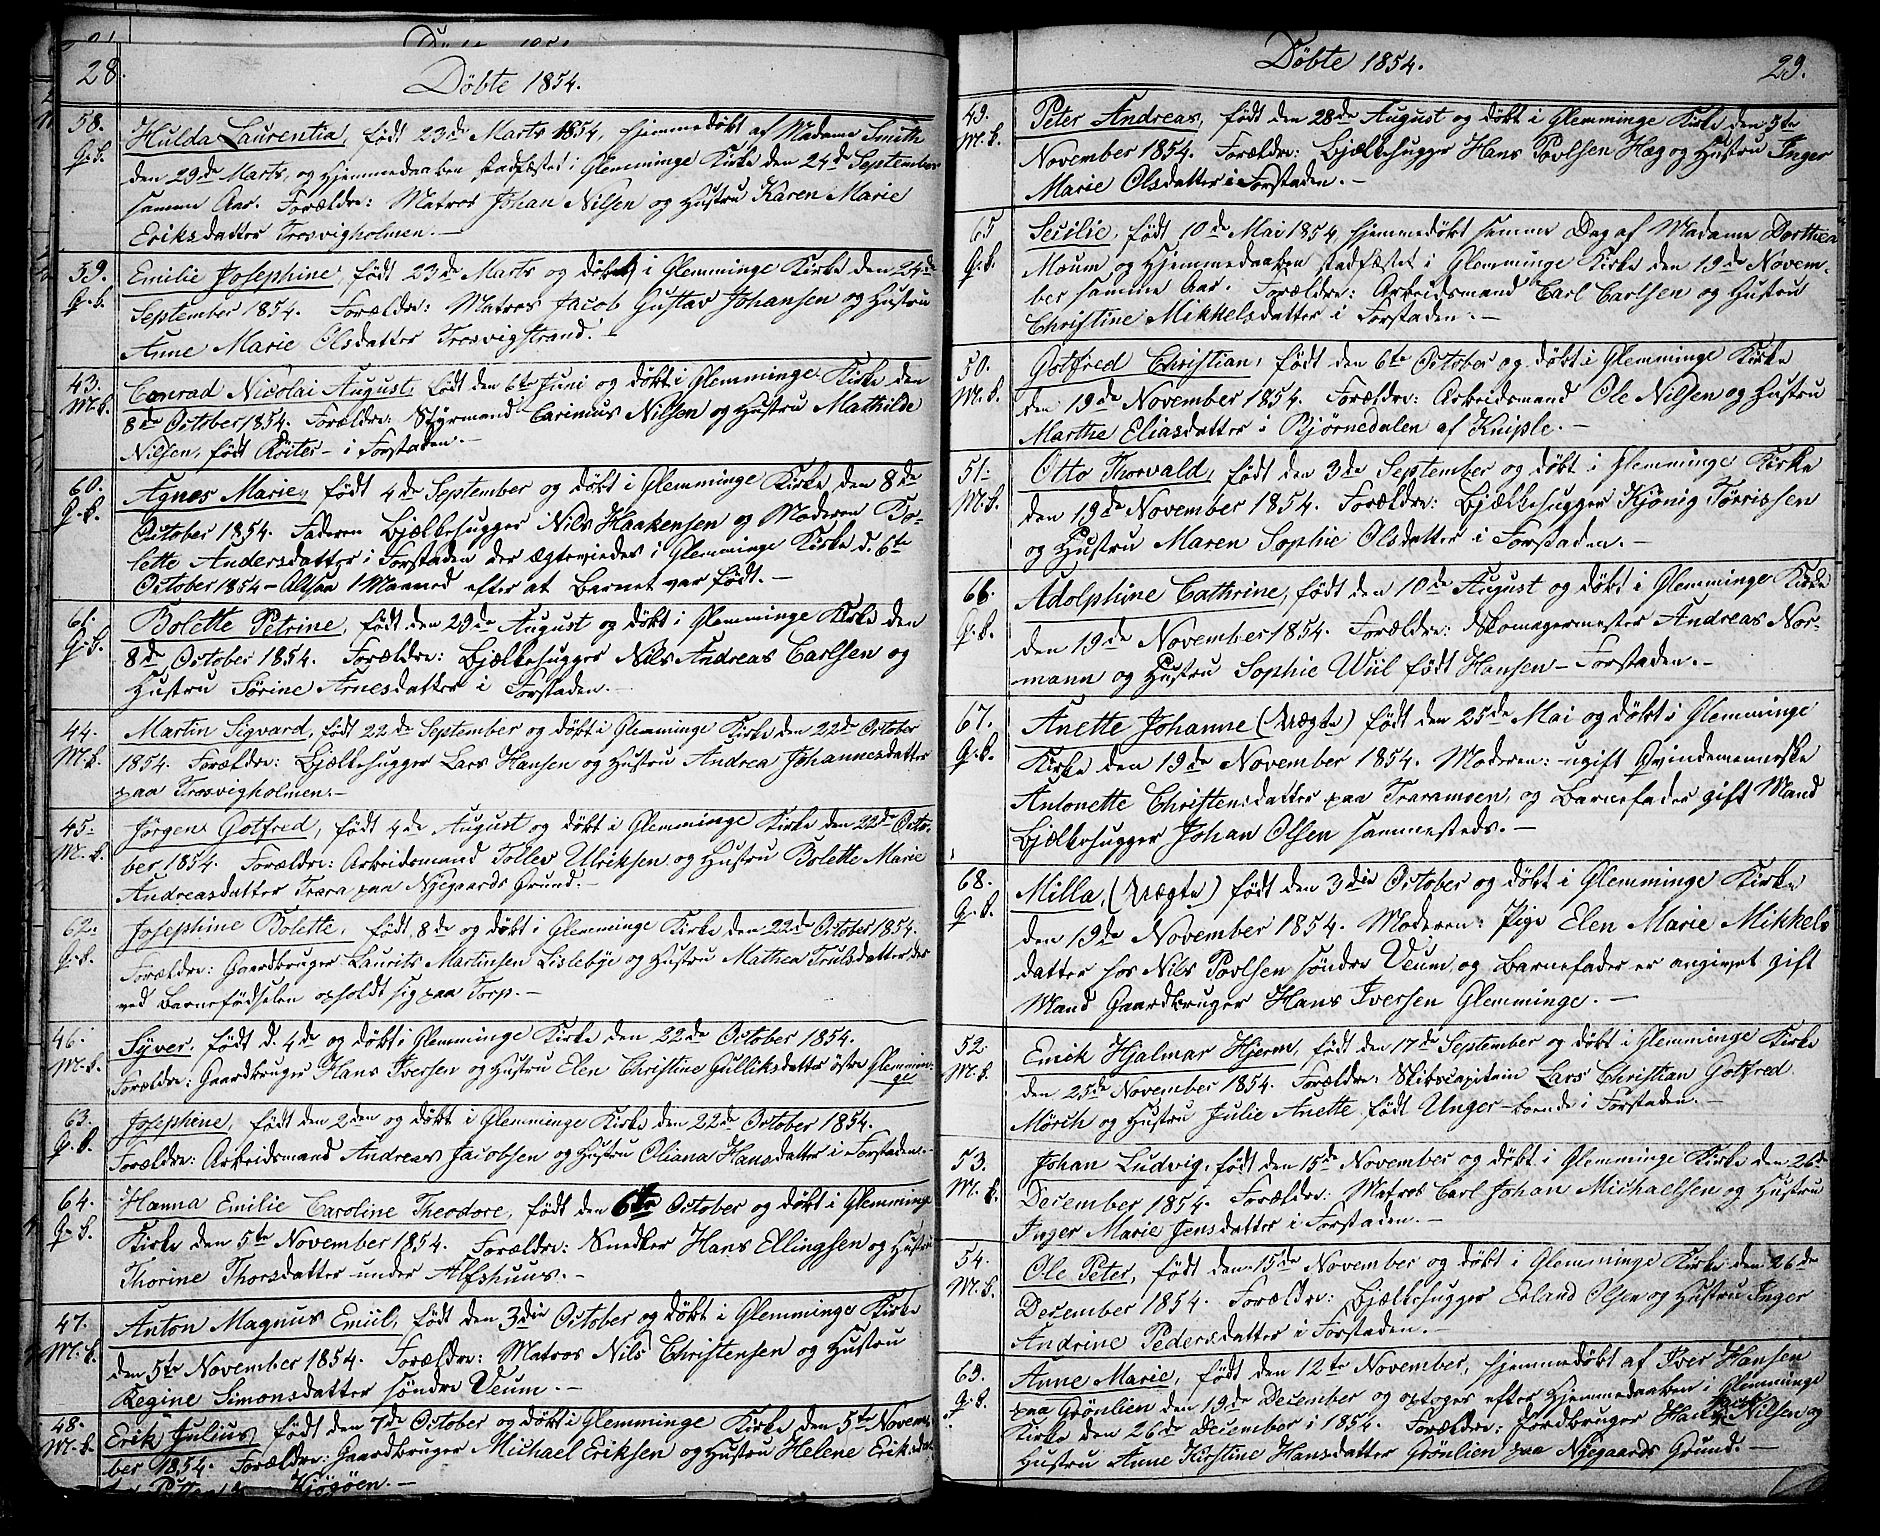 28.
Döbte 1854.
58. Hulda Laurentia, født 23de Marts 1854, hjemmedøbt af Madame Smith
Q.k. den 29de Marts, og Hjemmedaaben stadfæstet i Glemminge Kirke den 24de September
samme Aar. Forældre: Matros Johan Nilsen og Hustru Karen Marie
Eriksdatter Trosvigholmen.—
59. Emilie Josephine, født 23de Marts og døbt i Glemminge Kirke den 24de
Q.k. September 1854. Forældre: Matros Jacob Gustav Johansen og Hustru
Anne Marie Olsdatter Trosvigstrand.—
43. Conrad Nicolai August, født den 6te Juni og døbt i Glemminge Kirke den
M.k. 8de October 1854. Forældre: Styrmand Carinius Nilsen og Hustru Mathilde
Nilsen, født Röiter – i Forstaden.—
60. Agnes Marie, født 4de September og døbt i Glemminge Kirke den 8de
Q.k. October 1854. Faderen Bjelkehugger Nils Haakensen og Moderen Bo-
lette Andersdatter i Forstaden der ægteviedes i Glemminge Kirke d. 6te
October 1854 – Altsaa 1 Maaned efter at Barnet var født.—
61. Bolette Petrine, født den 29de August og døbt i Glemminge Kirke den
Q.k. 8de October 1854. Forældre: Bjelkehugger Nils Andreas Carlsen og
Hustru Sörine Arnesdatter i Forstaden.—
44. Martin Sigvard, født 22de September og døbt i Glemminge Kirke den 22de October
M.k. 1854. Forældre: Bjelkehugger Lars Hansen og Hustru Andrea Johannesdatter
paa Trosvigholmen.—
45. Jörgen Gotfred, født 4de August og døbt i Glemminge Kirke den 22de Octo-
M.k. ber 1854. Forældre: Arbeidsmand Tollev Ulriksen og Hustru Bolette Marie
Andreasdatter Trara paa Nyegaards Grund.—
62. Josephine Bolette, født 8de og døbt i Glemminge Kirke den 22de October 1854.
Q.k. Forældre: Gaardbruger Laurits Martinsen Lislebye og Hustru Mathea Trulsdatter der
ved Barnefödselen opholdt sig paa Torp.—
46. Syver, født d. 4de og døbt i Glemminge Kirke den 22de October 1854.
M.k. Forældre: Gaardbruger Hans Iversen og Hustru Elen Christine Gulliksdatter östre Glemmin-
ge
63. Josephine, født den 2den og døbt i Glemminge Kirke den 22de October 1854.
Q.k. Forældre: Arbeidsmand Andreas Jacobsen og Hustru Oliana Hansdatter i Forstaden.—
64. Hanna Emilie Caroline Theodore, født den 6te October og døbt i Glemminge
Q.k. Kirke den 5te November 1854. Forældre: Snedker Hans Ellingsen og Hustru
Thorine Thorsdatter under Alfshuus.—
47. Anton Magnus Emiil, født den 3die October og døbt i Glemminge Kirke
M.k. den 5te November 1854. Forældre: Matros Nils Christensen og Hustru
Regine Simonsdatter söndre Veum.—
48. Erik Julius, født den 7de October og døbt i Glemminge Kirke den 5te Novem-
M.k. ber 1854. Forældre: Gaardbruger Michael Eriksen og Hustru Helene Eriksdat-
Kjögöen.—
Döbte 1854.
29.
49. Peter Andreas, født den 28de August og døbt i Glemminge Kirke den 5te
M.k. November 1854. Forældre: Bjelkehugger Hans Povlsen Hæg og Hustru Inger
Marie Olsdatter i Forstaden.—
65 Secilie, født 10de Mai 1854, hjemmedøbt samme Dag af Madame Dorthea
Q.k. Moum, og Hjemmedaaben stadfæstet i Glemminge Kirke den 19de Novem-
ber samme Aar. Forældre: Arbeidsmand Carl Carlsen og Hustru
Christine Mikkelsdatter i Forstaden.—
50. Gotfred Christian, født den 6te October og døbt i Glemminge Kirke
M.k. den 19de November 1854. Forældre: Arbeidsmand Ole Nilsen og Hustru
Marthe Eliasdatter i Bjørnedalen af Kniple.—
51. Otto Thorvald, født den 3de September og døbt i Glemminge Kirke
M.k. den 19de November 1854. Forældre: Bjelkehugger Kjönig Törrissen
og Hustru Maren Sophie Olsdatter i Forstaden.—
66. Adolphine Cathrine, født den 10de August og døbt i Glemminge Kirke
Q.k. den 19de November 1854. Forældre: Skomagermester Andreas Nor-
mann og Hustru Sophie Wiil født Hansen – Forstaden.—
67. Anette Johanne (Uægte) født den 25de Mai og døbt i Glemminge
Q.k. Kirke den 19de November 1854. Moderen: ugift Qvindemenneske
Antonette Christensdatter paa Traramoen, og Barnefader gift Mand
Bjelkehugger Johan Olsen sammesteds.—
68. Milla, (Uægte) født den 3die October og døbt i Glemminge Kirke
Q.k. den 19de November 1854. Moderen: Pige Elen Marie Mikkels
datter hos Nils Povlsen söndre Veum, og Barnefader er angivet gift
Mand Gaardbruger Hans Iversen Glemminge.—
52. Emik Hjalmar Hjerm, født den 17de September og døbt i Glemminge Kirke
M.k. den 25de November 1854. Forældre: Skibscapitain Lars Christian Gotfred
Mörch og Hustru Julie Anette, født Unger – boende i Forstaden.—
53. Johan Ludvig, født den 15de November og døbt i Glemminge Kirke den 26de
M.k. December 1854. Forældre: Matros Carl Johan Michaelsen og Hustru
Inger Marie Jensdatter i Forstaden.—
54. Ole Peter, født den 15de November og døbt i Glemminge Kirke den 26de
M.k. December 1854. Forældre: Bjelkehugger Erland Olsen og Hustru Inger
Andrine Pedersdatter i Forstaden.—
69. Anne Marie, født den 12te November, hjemmedøbt af Iver Hansen
Q.k. paa Grönlien den 19de December og optoges efter Hjemmedaaben i Glemminge
Kirke den 26de December i 1854. Forældre: Jordbruger Hans Nilsen og
Hustru Anne Kirstine Hansdatter Grönlien paa Nyegaards Grund.—